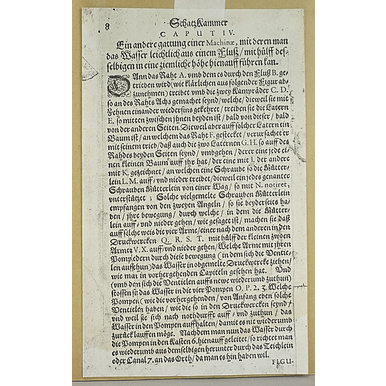 8 Schatzkammer
CAPUT IV.
Ein andere gattung einer Machinæ, mit deren man
das Wasser leichtlich auß einem Fluß / mit hülff des-
selbigen in eine ziemliche höhe hienauff führen kan.
Wann das Raht A. vmb dem es durch den Fluß B. ge-
trieben wird / wie klärlichen auß folgender Figur ab-
zunehmen) treibet vmb die zwey Kampräder C. D.
so an des Rahts Achs gemachet seynd / welche / dieweil sie mit
Zehnen einander wiedersins gekehret / treiben sie die Latern
E. so mitten zwischen jhnen beyden ist / bald von dieser / bald
von der anderen Seiten. Dieweil aber auff solcher Latern ein
Baum ist / an welchem das Raht F. gestecket / verursachet er
mit seinem trieb / daß auch die zwo Laternen G. H. so auff des
Rahdes beyden Seiten seynd / vmbgehen / derer eine jede ei-
nen kleinen Baum auff jhr hat / der eine mit I. der andere
mit K. gezeichnet / an welchen eine Schraube so die Mütter-
lein L. M. auff / vnd nieder treibet / dieweil ein jedes genanter
Schrauben Mütterlein von einer Wag / so mit N. notiret,
vnterstützet ; Solche vielgemelte Schrauben Mütterlein
empfangen von den zweyen Angeln / so sie beyderseits ha-
ben / jhre bewegung / durch welche / in dem die Mütter-
lein auff / vnd nieder gehen / wie gesaget ist / machen sie daß
auff solche weis die vier Arme / einer nach dem anderen in den
Druckwercken Q. R. S. T. mit hülff der kleinen Winnen
Armen V. X. auff / vnd nieder gehen / Welche Arme mit jhren
Pompiedern durch diese bewegung (in dem sich die Ventie-
len auffthun) das Wasser in obgemelte Druckwercke ziehen /
wie mair in vorhergehenden Capitteln gesehen hat. Vnd
(vmb den sich die Ventielen auffs newe wiederumb zuthun)
stossen sie das Wasser in die vier Pompen O. P. 2. 3. Welche
Pompen / wie die vorhergehenden / von Anfang eben solche
Ventielen haben / wie die so in den Druckwercken seynd /
vnd weil sie sich nach nothdurfft auff / vnd zuthun / das
Wasser in den Pompen auffhalten / damit es nit wiederumb
zurück lauffen möge. Nachdem man nun das Wasser durch
die Pompen in den Kasten 6. hienauff geleitet / so richtet man
es wiederumb auß demselbigen herunter durch das Teichlein
oder Canal 7. an das Orth / da man es hin haben wil.
FIGU-